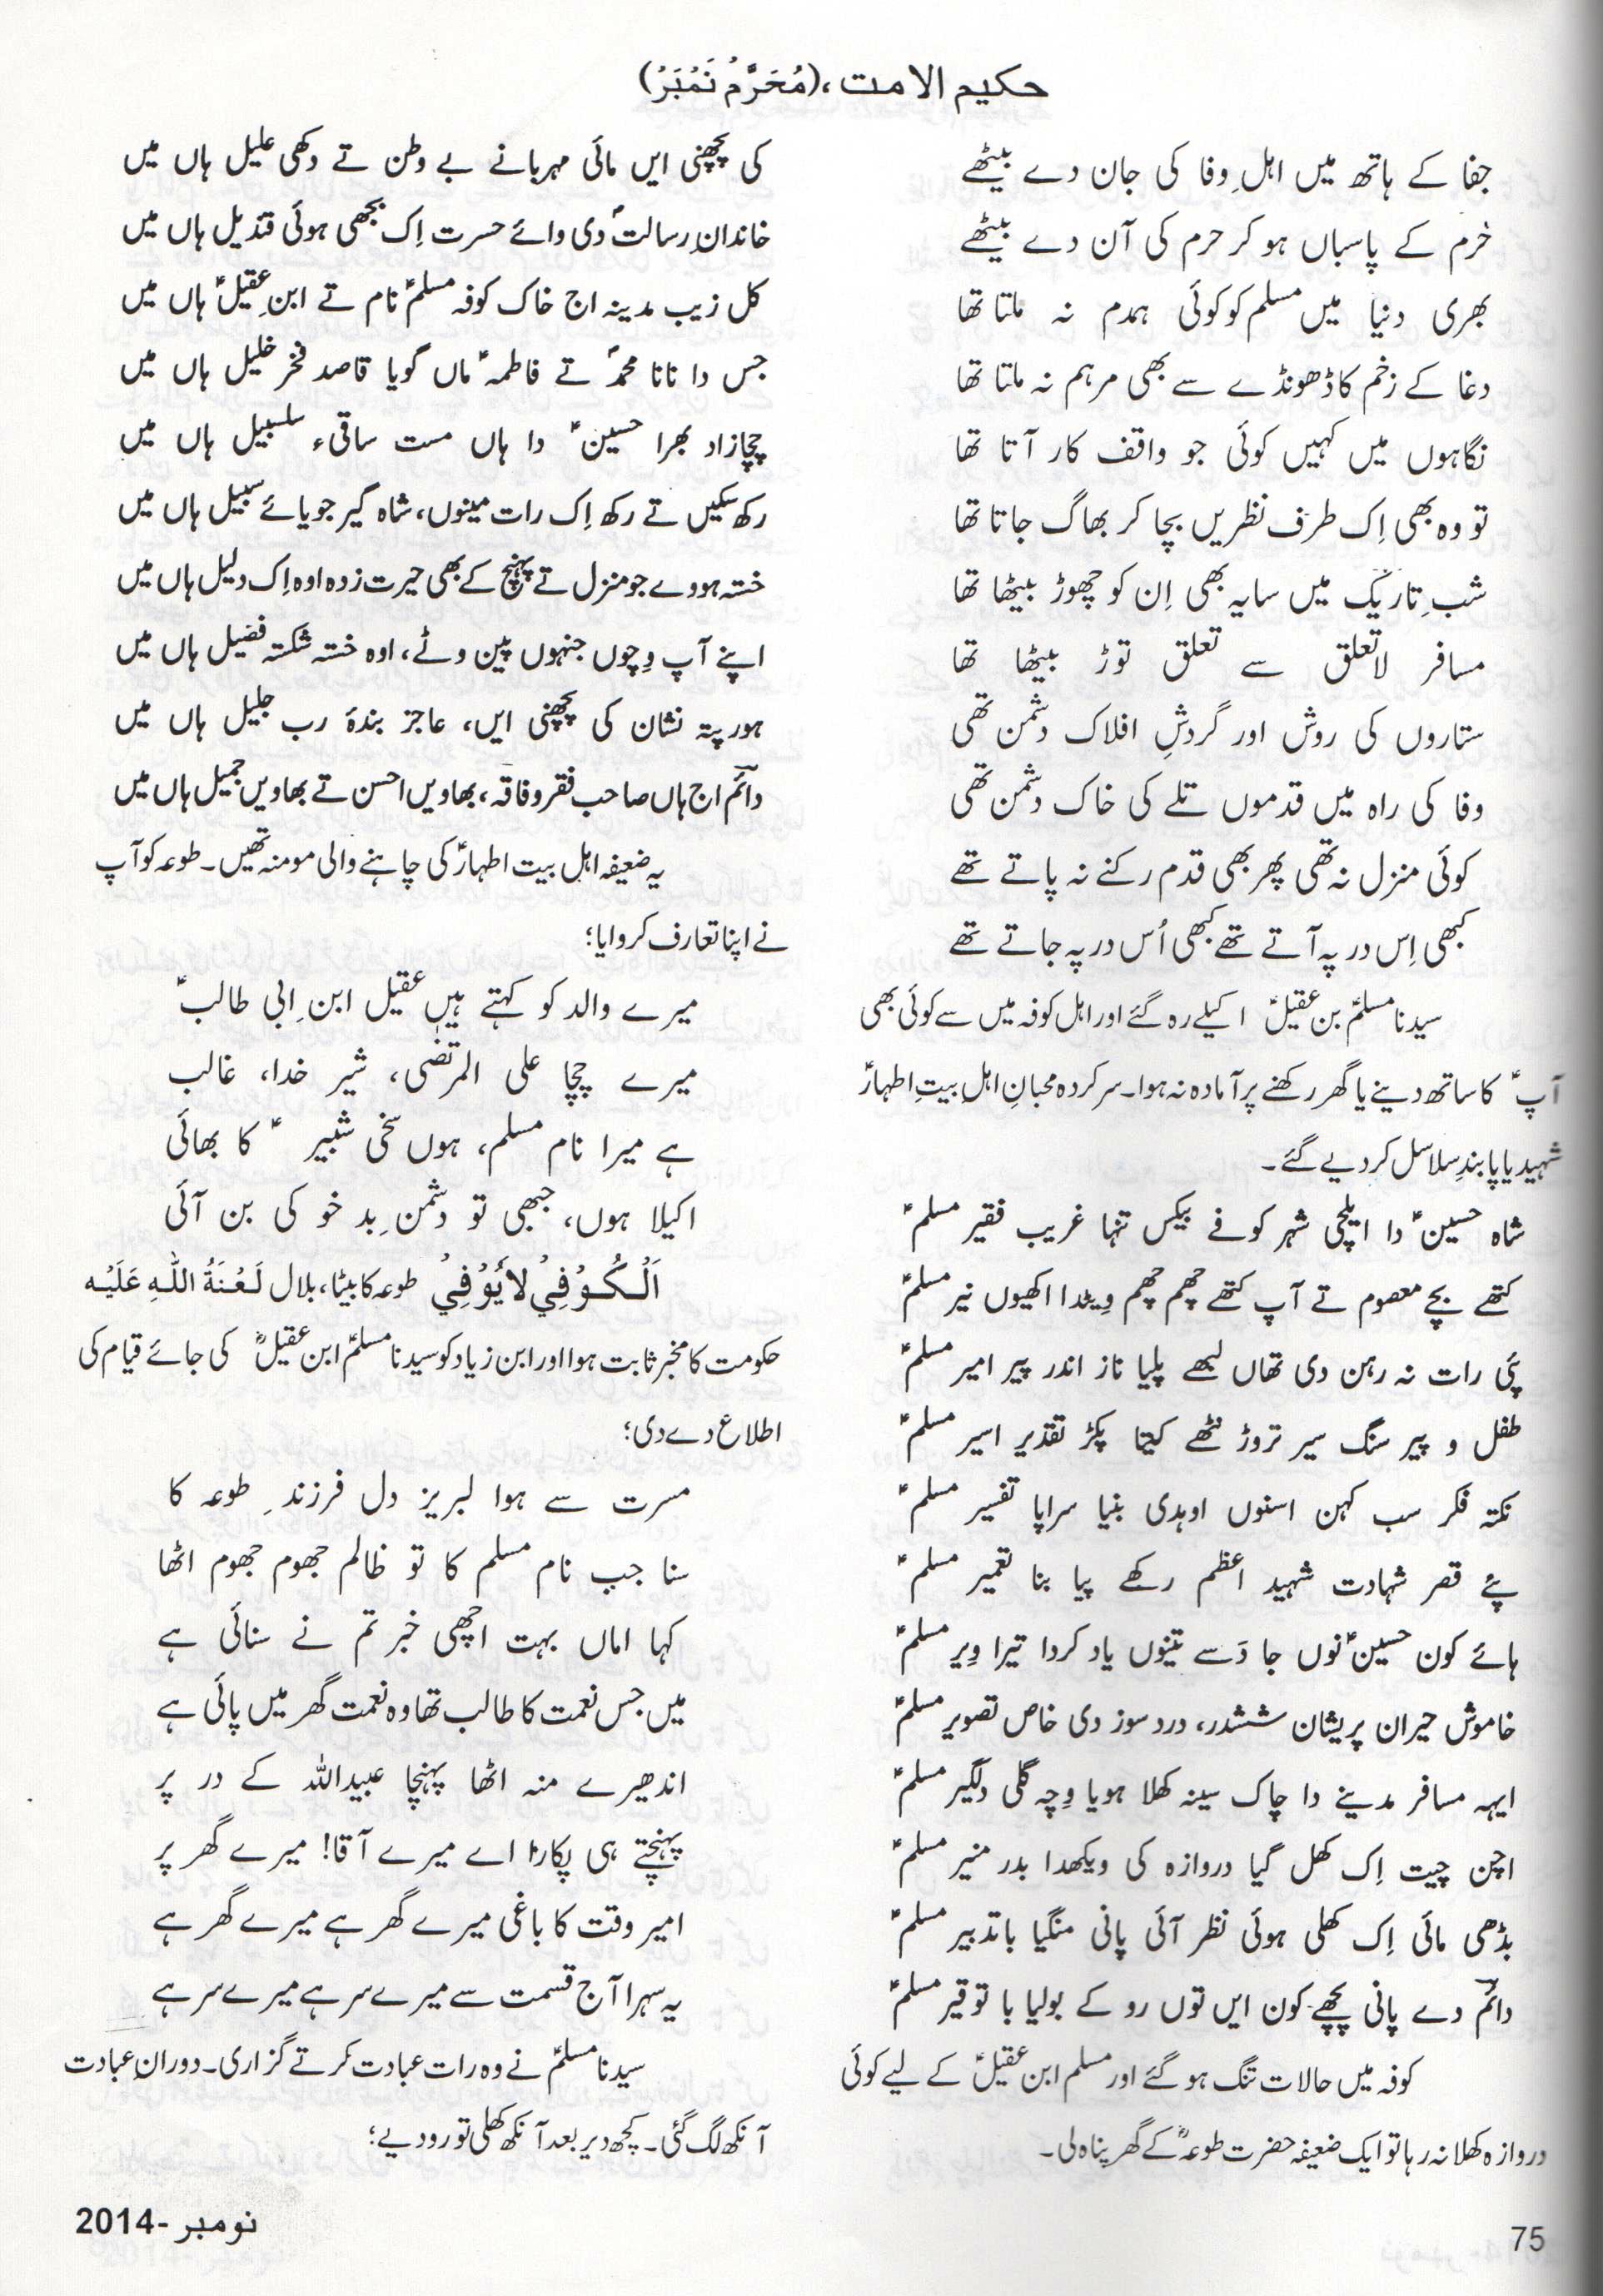 حکیم الامت، (مُحَرَّمْ نَمْبَرْ)
جفا کے ہاتھ میں اہلِ وفا کی جان دے بیٹھے
حَرم کے پاسباں ہو کر حرم کی آن دے بیٹھے
بھری دنیا میں مسلم کو کوئی ہمدم نہ ملتا تھا
دغا کے زخم کا ڈھونڈے سے بھی مرہم نہ ملتا تھا
نگاہوں میں کہیں کوئی جو واقف کار آتا تھا
تو وہ بھی اِک طرف نظریں بچا کر بھاگ جاتا تھا
شبِ تاریک میں سایہ بھی اِن کو چھوڑ بیٹھا تھا
مسافر لا تعلق سے تعلق توڑ بیٹھا تھا
ستاروں کی روش اور گردشِ افلاک دشمن تھی
وفا کی راہ میں قدموں تلے کی خاک دشمن تھی
کوئی منزل نہ تھی پھر بھی قدم رکنے نہ پاتے تھے
کبھی اِس در پہ آتے تھے کبھی اُس در پہ جاتے تھے
سیدنا مسلمؑ بن عقیلؑ اکیلے رہ گئے اور اہل کوفہ میں سے کوئی بھی
آپؑ کا ساتھ دینے یا گھر رکھنے پر آمادہ نہ ہوا۔ سرکردہ محبانِ اہلِ بیتِ اطہارؑ
شہید یا پابندِ سلاسل کر دیے گئے۔
شاہ حسینؑ دا ایلچی شہر کوفے بیکس تنہا غریب فقیر مسلمؑ
کتھے بچے معصوم تے آپ کتھے چھم چھم ویندا اکھیوں نیر مسلمؑ
پئی رات نہ رہن دی تھاں لبھے پلیا ناز اندر پیر امیر مسلمؑ
طفل و پیر سنگ سیر تروڑ نٹھے کیتا پکڑ تقدیر اسیر مسلمؑ
نکتہ فکر سب کہن اسنوں اوہدی بنیا سراپا تفسیر مسلمؑ
پئے قصر شہادت شہید اعظم رکھے پیا بنا تعمیر مسلمؑ
ہائے کون حسینؑ نوں جا دَسے تینوں یاد کردا تیرا وِیر مسلمؑ
خاموش حیران پریشان ششدر، درد سوز دی خاص تصویر مسلمؑ
ایہہ مسافر مدینے دا چاک سینہ کھلا ہویا وِچہ گلی دلگیر مسلمؑ
اچن چیت اِک کھل گیا دروازہ کی ویکھدا بدر منیر مسلمؑ
بڈھی مائی اِک کھلی ہوئی نظر آئی پانی منگیا باتدبیر مسلمؑ
دائمؔ دے پانی پچھے کون ایں توں رو کے بولیا با توقیر مسلمؑ
کوفہ میں حالات تنگ ہو گئے اور مسلم ابن عقیلؑ کے لیے کوئی
دروازہ کھلا نہ رہا تو ایک ضعیفہ حضرت طوعہؓ کے گھر پناہ لی۔
کی پچھنی ایں مائی مہربانے بے وطن تے دکھی علیل ہاں میں
خاندانِ رسالتؐ دی وائے حسرت اِک بجھی ہوئی قندیل ہاں میں
کل زیب مدینہ اج خاک کوفہ مسلمؑ نام تے ابنِ عقیلؑ ہاں میں
جس دا نانا محمدؐ تے فاطمہؑ ماں گویا قاصد فخر خلیل ہاں میں
چچازاد بھرا حسینؑ دا ہاں مست ساقیٔ سلسبیل ہاں میں
رکھ سکیں تے رکھ اِک رات مینوں، شاہ گیر جویائے سبیل ہاں میں
خستہ ہووے جو منزل تے پہنچ کے بھی حیرت زدہ اوہ اِک دلیل ہاں میں
اپنے آپ وِچوں جنہوں پین وٹے، اوہ خستہ شکستہ فصیل ہاں میں
ہور پتہ نشان کی پچھنی ایں، عاجز بندۂ رب جلیل ہاں میں
دائمؔ اج ہاں صاحب فقر و فاقہ، بھاویں احسن تے بھاویں جمیل ہاں میں
یہ ضعیفہ اہل بیت اطہارؑ کی چاہنے والی مومنہ تھیں۔ طوعہ کو آپ
نے اپنا تعارف کروایا؛
میرے والد کو کہتے ہیں عقیل ابنِ ابی طالبؑ
میرے چچا علی المرتضٰی، شیر خدا، غالب
ہے میرا نام مسلم، ہوں سخی شبیرؑ کا بھائی
اکیلا ہوں، جبھی تو دشمنِ بد خو کی بن آئی
اَلْکُوْفِیْ لَا یُوْفِیْ طوعہ کا بیٹا، بلال لَعْنَۃُ اللّٰہِ عَلَیْہ
حکومت کا مخبر ثابت ہوا اور ابن زیاد کو سیدنا مسلمؑ ابن عقیلؓ کی جائے قیام کی
اطلاع دے دی؛
مسرت سے ہوا لبریز دل فرزندِ طوعہ کا
سنا جب نام مسلم کا تو ظالم جھوم جھوم اٹھا
کہا اماں بہت اچھی خبر تم نے سنائی ہے
میں جس نعمت کا طالب تھا وہ نعمت گھر میں پائی ہے
اندھیرے منہ اٹھا پہنچا عبیداللہ کے در پر
پہنچتے ہی پکارا اے میرے آقا! میرے گھر پر
امیر وقت کا باغی میرے گھر ہے میرے گھر ہے
یہ سہرا آج قسمت سے میرے سر ہے میرے سر ہے
سیدنا مسلمؑ نے وہ رات عبادت کرتے گزاری۔ دورانِ عبادت
آنکھ لگ گئی۔ کچھ دیر بعد آنکھ کھلی تو رو دیے؛
75
نومبر -2014